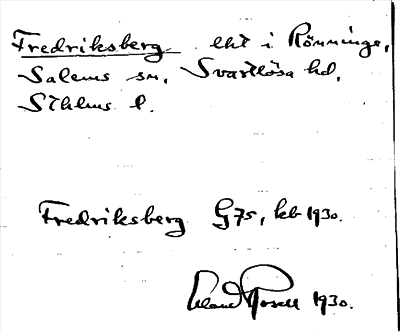 Fredriksberg lht i Rönninge,
Salems sn, Svartlösa hd,
Sthlms l.
Fredriksberg G75, kb 1930.
1930.